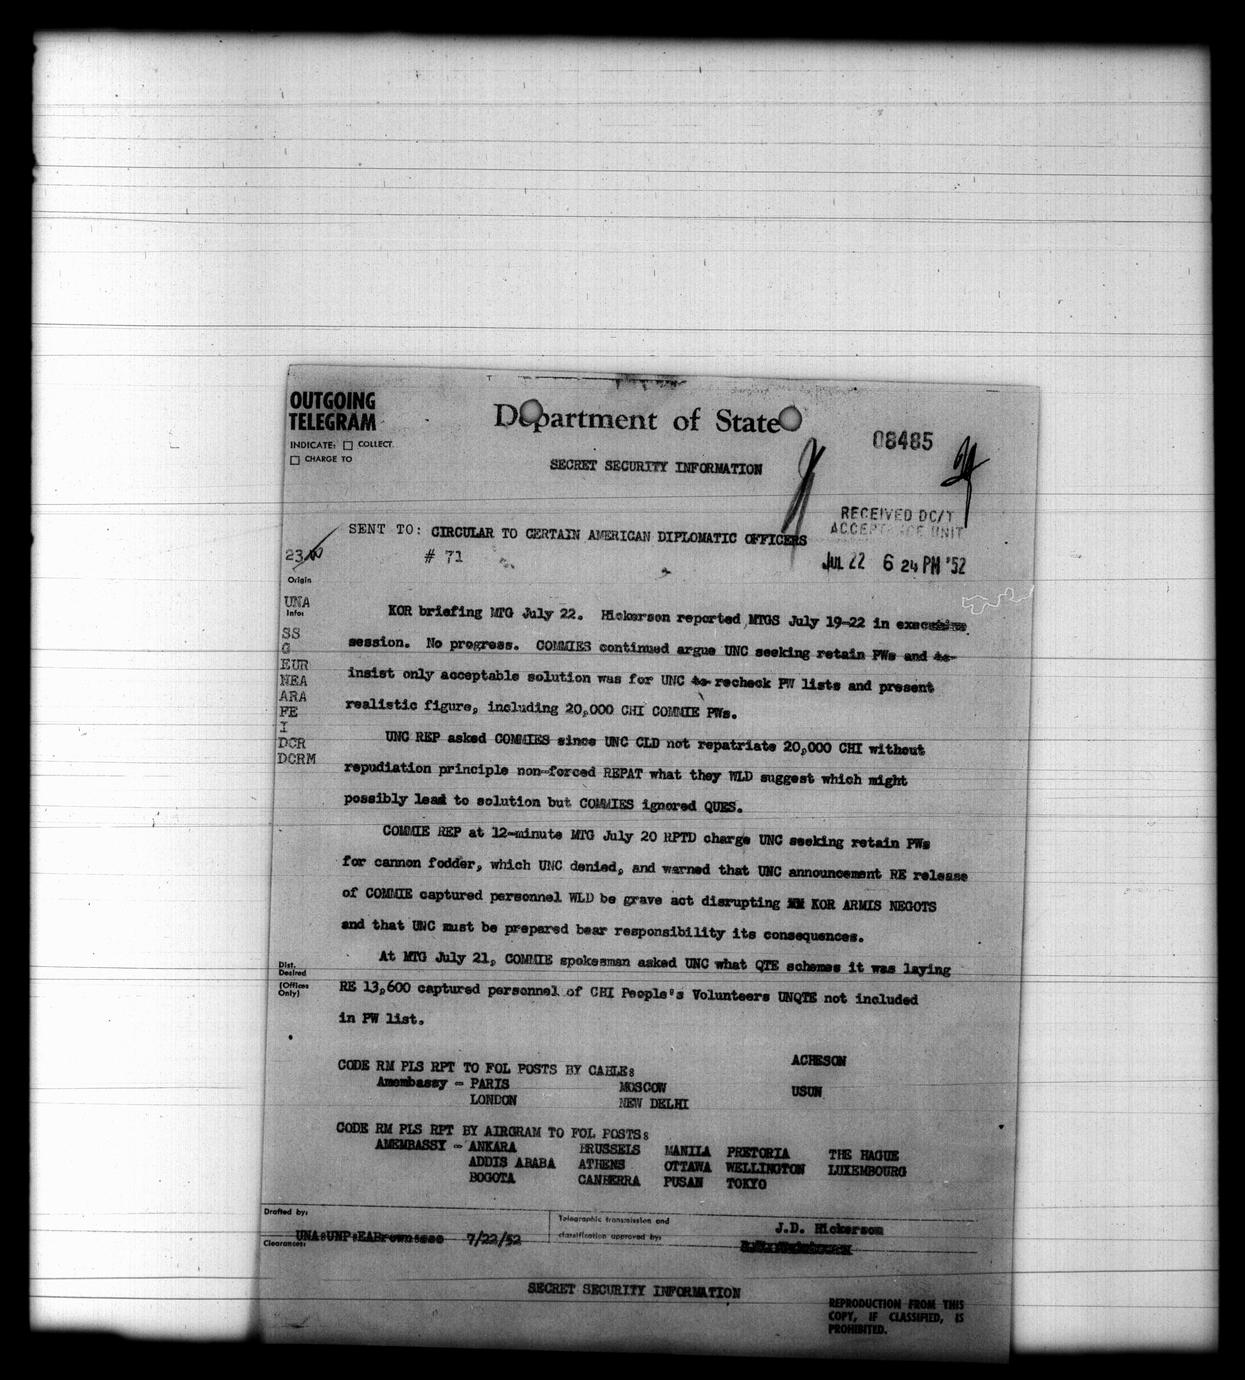 OUTGOING
TELEGRAM
INDICATE: ☐ COLLECT
☐ CHARGE TO
Department of State
08485
SECRET SECURITY INFORMATION
RECEIVED DC/T
ACCEPTANCE UNIT
JUL 22 6 24 PM '52
SENT TO: CIRCULAR TO CERTAIN AMERICAN DIPLOMATIC OFFICERS
# 71
23
Origin
UNA
Info:
SS
G
EUR
NEA
ARA
FE
I
DCR
DCRM
KOR briefing MTG July 22. Hickerson reported MTGS July 19-22 in executive
session. No progress. COMMIES continued argue UNC seeking retain PWs and to
insist only acceptable solution was for UNC to recheck PW lists and present
realistic figure, including 20,000 CHI COMMIE PWs.
UNC REP asked COMMIES since UNC CLD not repatriate 20,000 CHI without
repudiation principle non-forced REPAT what they WLD suggest which might
possibly lead to solution but COMMIES ignored QUES.
COMMIE REP at 12-minute MTG July 20 RPTD charge UNC seeking retain PWs
for cannon fodder, which UNC denied, and warned that UNC announcement RE release
of COMMIE captured personnel WLD be grave act disrupting KOR ARMIS NEGOTS
and that UNC must be prepared bear responsibility its consequences.
At MTG July 21, COMMIE spokesman asked UNC what QTE schemes it was laying
RE 13,600 captured personnel of CHI People's Volunteers UNQTE not included
in PW list.
Dist.
Desired
(Offices
Only)
ACHESON
CODE RM PLS RPT TO FOL POSTS BY CABLE:
Amembassy - PARIS MOSCOW USUN
LONDON NEW DELHI
CODE RM PLS RPT BY AIRGRAM TO FOL POSTS:
AMEMBASSY - ANKARA BRUSSELS MANILA PRETORIA THE HAGUE
ADDIS ABABA ATHENS OTTAWA WELLINGTON LUXEMBOURG
BOGOTA CANBERRA PUSAN TOKYO
Drafted by:
UNA:UNP:EABrown:eee 7/22/52
Telegraphic transmission and
classification approved by:
J.D. Hickerson
Clearances:
SECRET SECURITY INFORMATION
REPRODUCTION FROM THIS
COPY, IF CLASSIFIED, IS
PROHIBITED.